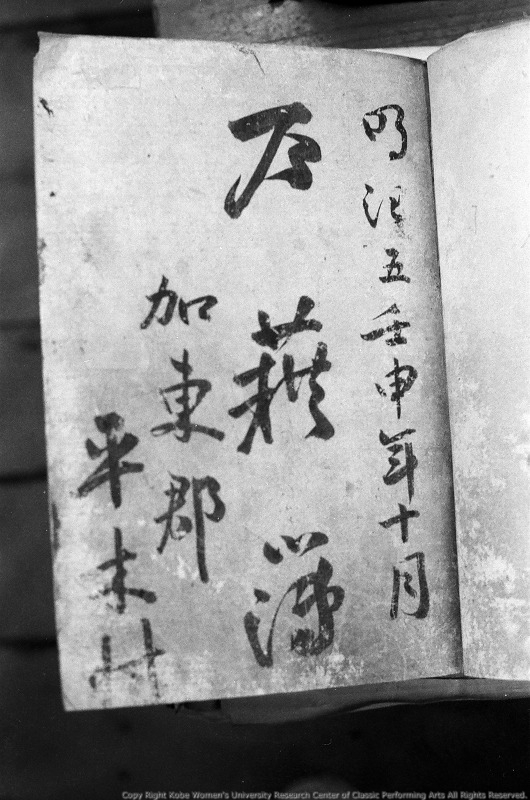 明治五壬申年十月
戸籍簿
加東郡
平木村
Copy Right Kobe Women's University Research Center of Classic Performing Arts All Rights Reserved.